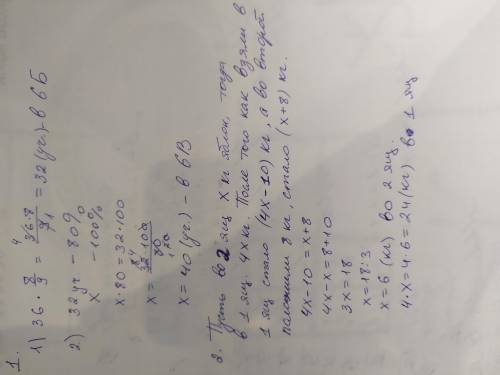 1.
1) 36 · 8/9 = 36·8/9 = 32 (уч.) - в 6Б
2) 32 уч - 80%
x - 100%
x · 80 = 32 · 100
x = 32·100/80
x = 40 (уч.) - в 6В
2. Пусть во 2 ящ x кг яблок, тогда
в 1 ящ. 4x кг. После того как взяли в
1 ящ стало (4x-10) кг, а во второй
положили 8 кг, стало (x+8) кг.
4x-10 = x+8
4x-x = 8+10
3x = 18
x = 18:3
x = 6 (кг) во 2 ящ.
4·x = 4·6 = 24 (кг) во 1 ящ